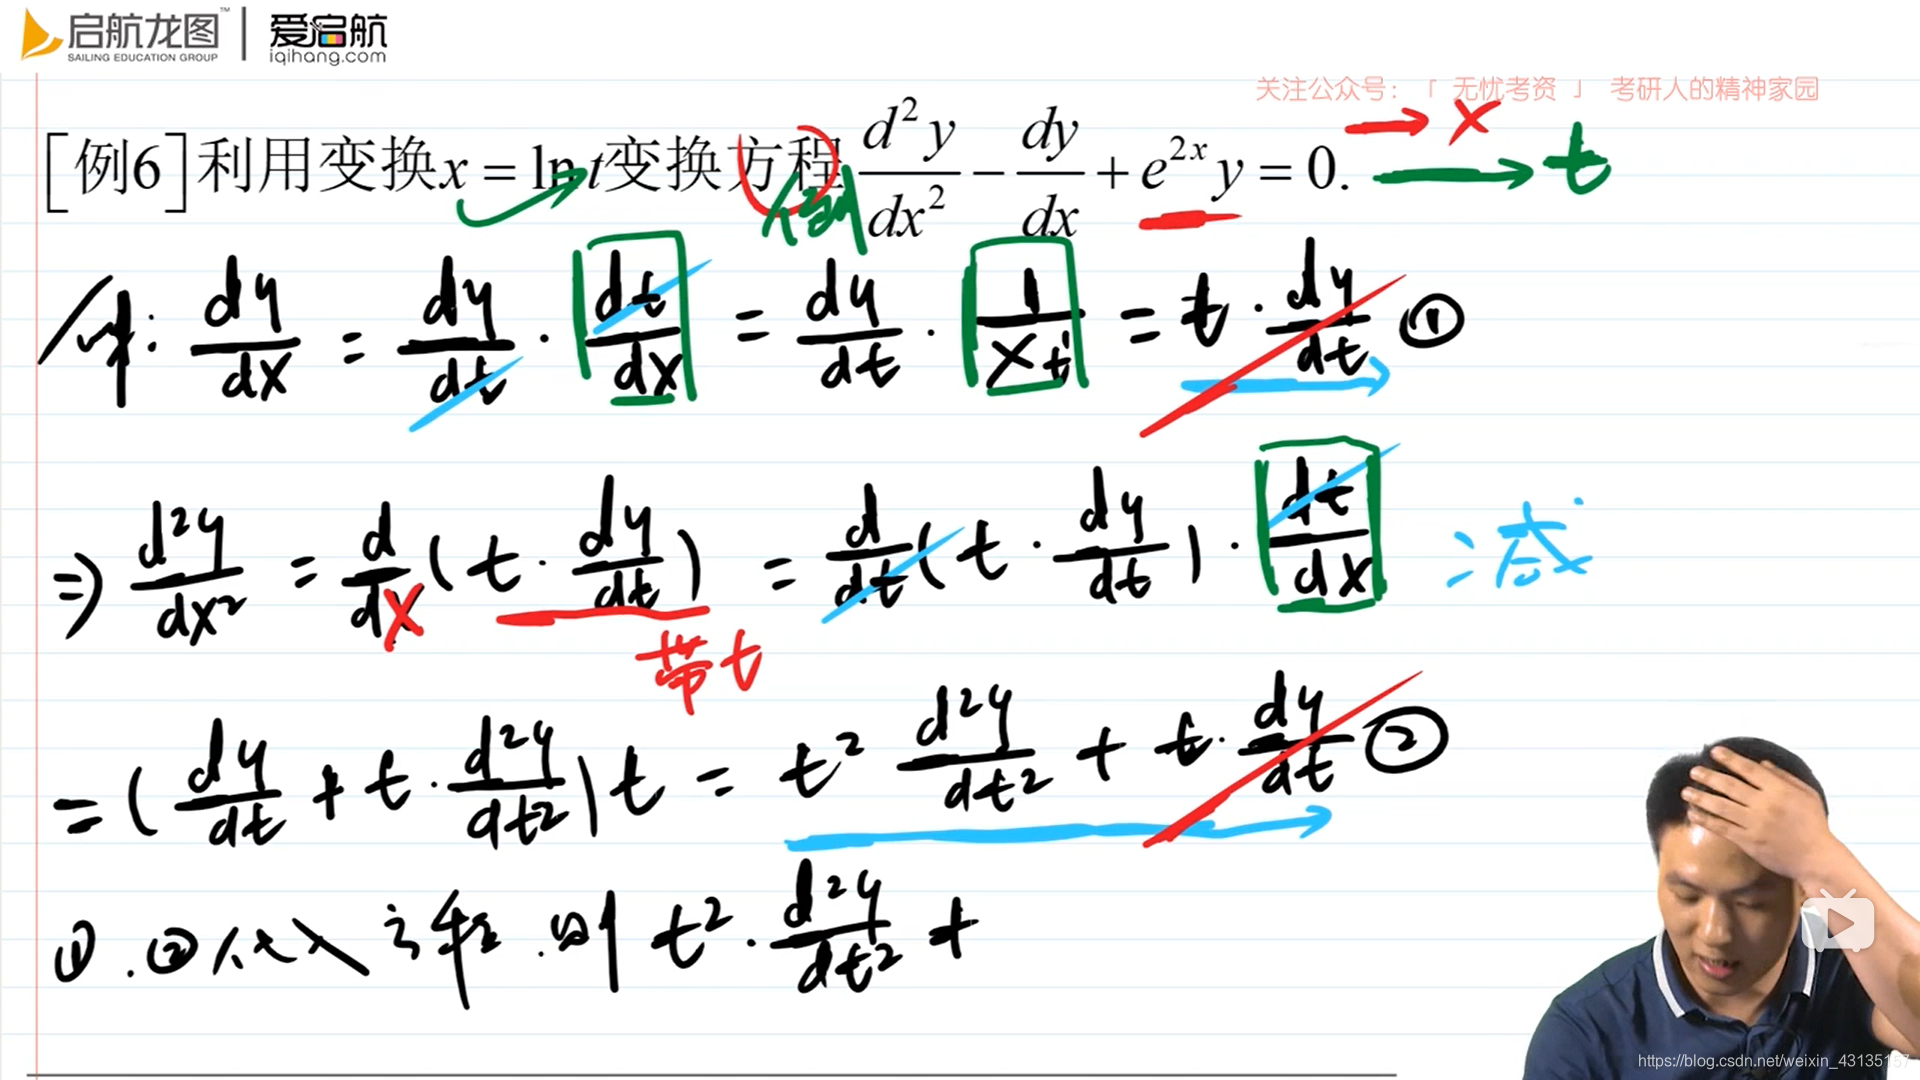 启航龙图 | 爱启航
SAILING EDUCATION GROUP iqihang.com
关注公众号：「 无忧考资 」 考研人的精神家园
[例6]利用变换x = ln t变换方程 d²y/dx² − dy/dx + e^{2x}y = 0. → x
→ t
倒
解: dy/dx = dy/dt · dt/dx = dy/dt · 1/x't = t · dy/dt ①
⇒ d²y/dx² = d/dx (t · dy/dt) = d/dt (t · dy/dt) · dt/dx
带t
= (dy/dt + t · d²y/dt²) t = t² d²y/dt² + t · dy/dt ②
①.②代入方程.则 t² · d²y/dt² +
https://blog.csdn.net/weixin_43135157